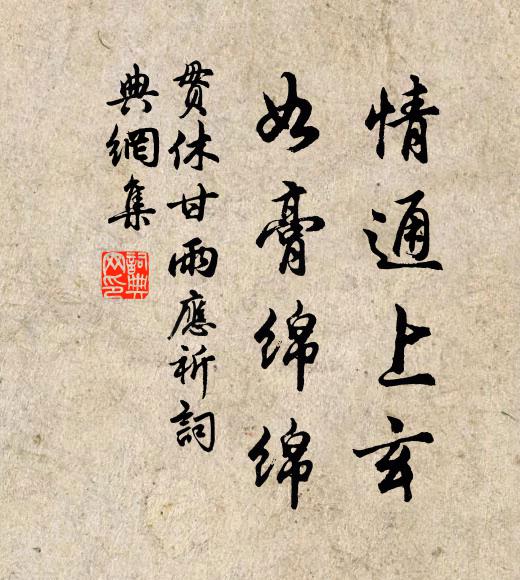 情通上玄
如膏绵绵
贯休甘雨應祈詞
典網集
詞典网印